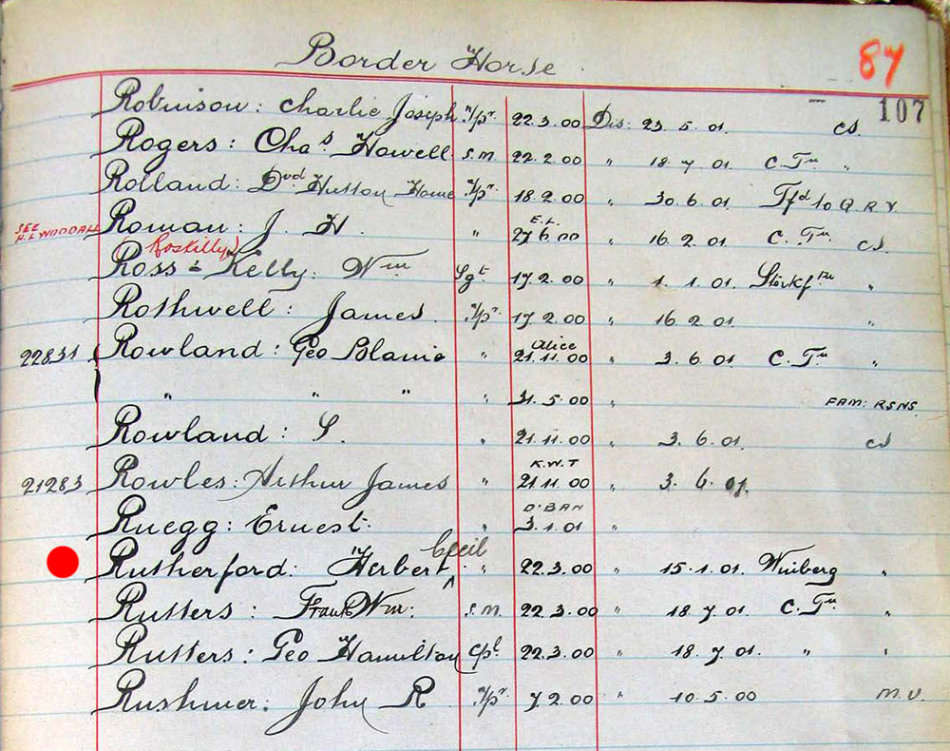 Border Horse
87
107
Robinson: Charlie Joseph Tpr. 22.3.00 Dis: 23.5.01. cs.
Rogers: Chas Howell S.M. 22.2.00 " 18.7.01. C.Tn "
Rolland: Dvd Hutton Home Tpr. 18.2.00 " 30.6.01. Tfd to Q R V.
SEE
H.L WOODALL Roman: J. H. " E.L. 27.6.00 " 16.2.01 C.Tn cs.
Roskilly
Ross & Kelly: Wm Sgt 17.2.00 " 1.1.01. "
Rothwell: James. Tpr. 17.2.00 " 16.2.01. "
Alice
22831 Rowland: Geo " 21.11.00 " 3.6.01 C.Tn "
" " " " 31.5.00 " FAM: RSNS.
Rowland: S. " 21.11.00 " 3.6.01. cs
K.W.T
21283 Rowles: Arthur James " 21.11.00 " 3.6.01.
D'BAN
Ruegg: Ernest. " 3.1.01 "
Cecil
Rutherford: Herbert ^ " 22.3.00 " 15.1.01. Winberg "
Rutters: Frank Wm: S.M. 22.3.00 " 18.7.01 C.Tn "
Rutters: Geo Hamilton Cpl 22.3.00 " 18.7.01. " "
Rushmer: John R Tpr. 7.2.00 " 10.5.00 M.U.